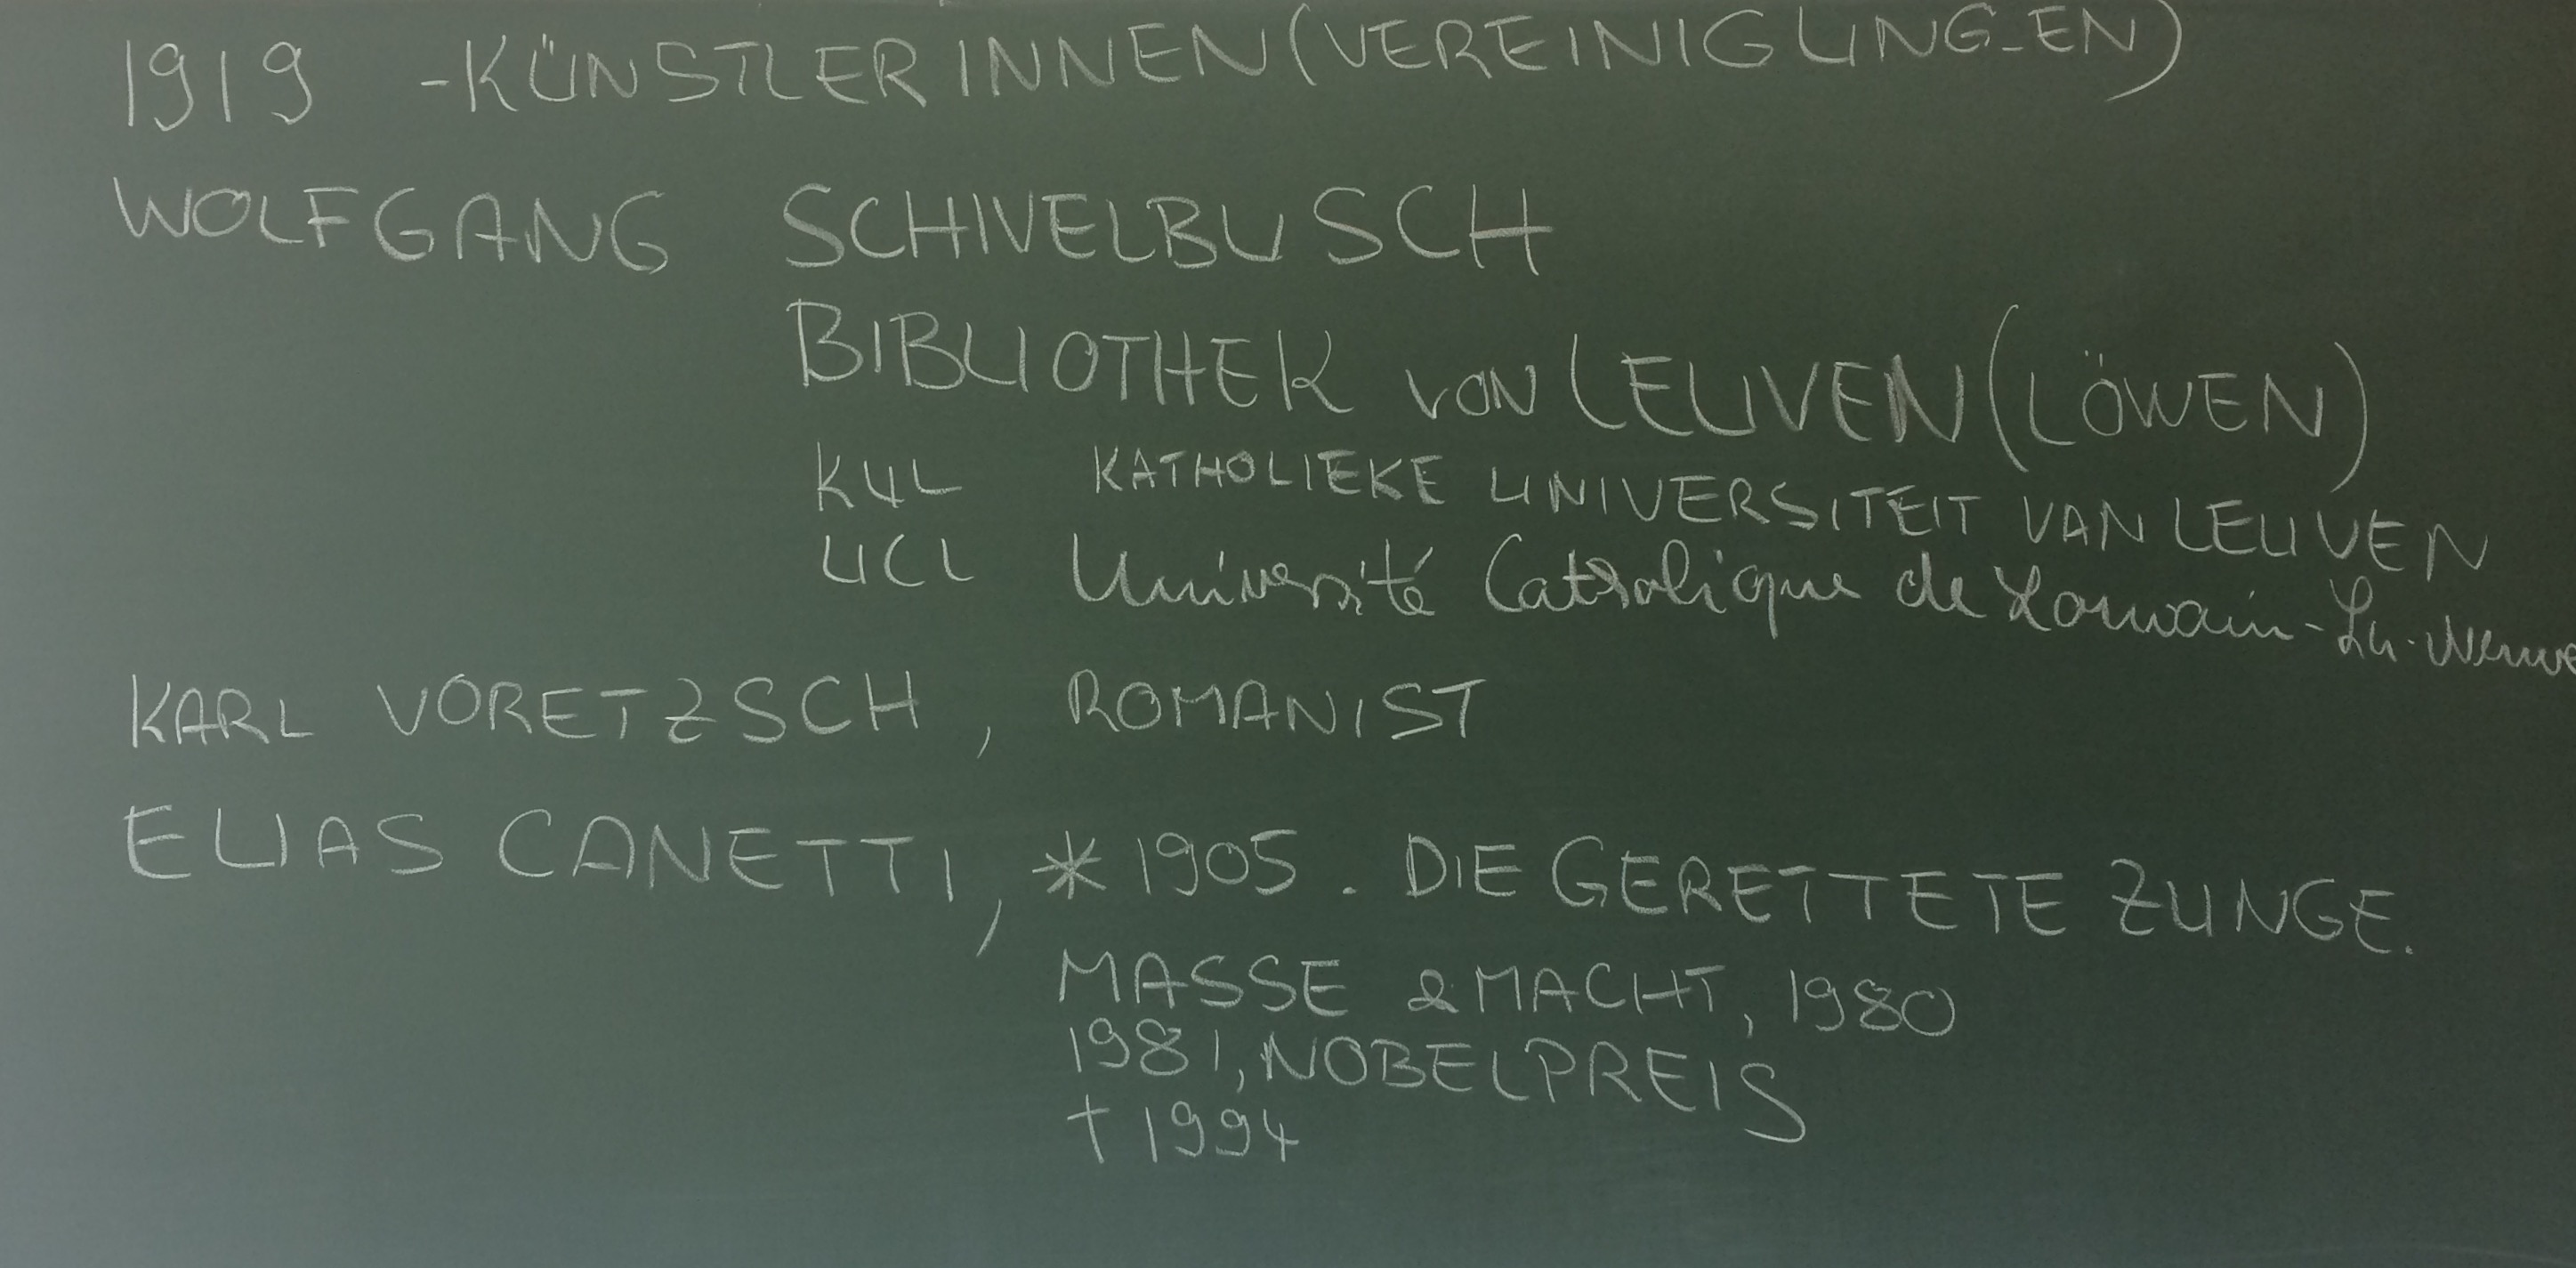 1919 -KÜNSTLERINNEN(VEREINIGUNG-EN)
WOLFGANG SCHIVELBUSCH
BIBLIOTHEK VON LEUVEN (LÖWEN)
KUL KATHOLIEKE UNIVERSITEIT VAN LEUVEN
UCL Université Catholique de Louvain-La-Neuve
KARL VORETZSCH, ROMANIST
ELIAS CANETTI, * 1905. DIE GERETTETE ZUNGE.
MASSE & MACHT, 1980
1981, NOBELPREIS
† 1994